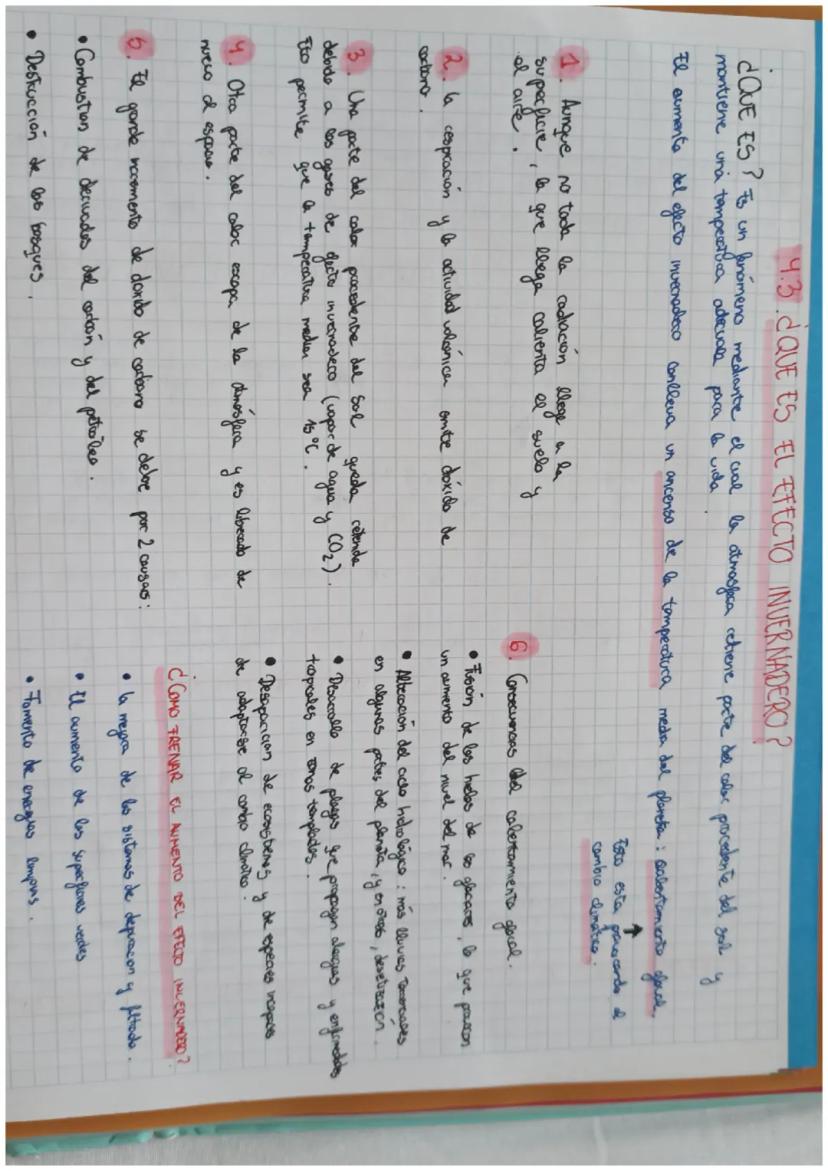 4.3. ¿QUE ES EL EFECTO INVERNADERO?
¿QUE ES? Es un fenómeno mediante el cual la atmosfera retiene parte del calor procedente del sol y
mantiene una temperatura adecuada para la vida.
El aumento del efecto invernadero conlleva un ascenso de la temperatura media del planeta: calentamiento global.
Esto esta provocando el
cambio climático.
1. Aunque no toda la radiación llega a la
superficie, la que llega calienta el suelo y
el aire.
2. la respiración y la actividad volcánica emite dióxido de
carbono.
3. Una parte del calor procedente del Sol queda retenida
debido a los gases de efecto invernadero (vapor de agua y CO2).
Esto permite que la temperatura media sea 15°C.
4. Otra parte del calor escapa de la atmósfera y es liberado de
nuevo al espacio.
5. El grande incremento de dioxido de carbono se debe por 2 causas:
• Combustion de derivados del carbón y del petróleo.
• Destrucción de los bosques.
6. Consecuencias del calentamiento global.
• Fusión de los hielos de los glaciares, lo que provocan
un aumento del nivel del mar.
• Alteración del ciclo hidrológico: más lluvias torrenciales
en algunas partes del planeta, y en otras, desertización.
• Desarrollo de plagas que propagan alergias y enfermedades
tropicales en zonas templadas.
• Desaparicion de ecosistemas y de especies incapaces
de adaptarse al cambio climático.
¿COMO FRENAR EL AUMENTO DEL EFECTO INVERNADERO?
• la mejora de los sistemas de depuracion y filtrado.
• El aumento de las superficies verdes
• Fomento de energías limpias.